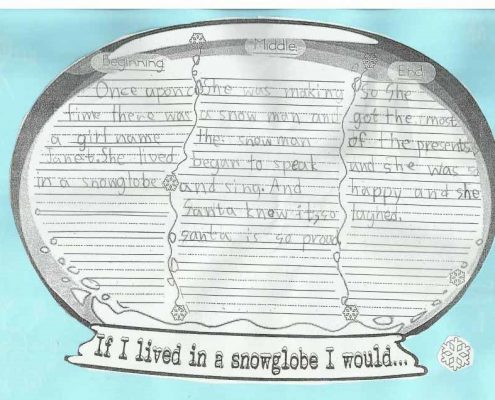 Beginning
Once upon a
time there was
a girl name
Janet. She lived
in a snowglobe
Middle
She was making
a snow man and
the snowman
began to speak
and sing. And
Santa know it, so
santa is so proud
End
so She
got the most
of the presents
and she was so
happy and she
laghed.
If I lived in a snowglobe I would...